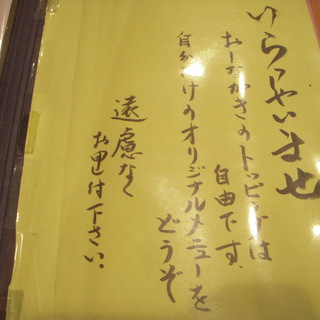 いらっしゃいませ
おしながきのトッピングは
自由です、
自分だけのオリジナルメニューを
どうぞ
遠慮なく
お申付下さい。